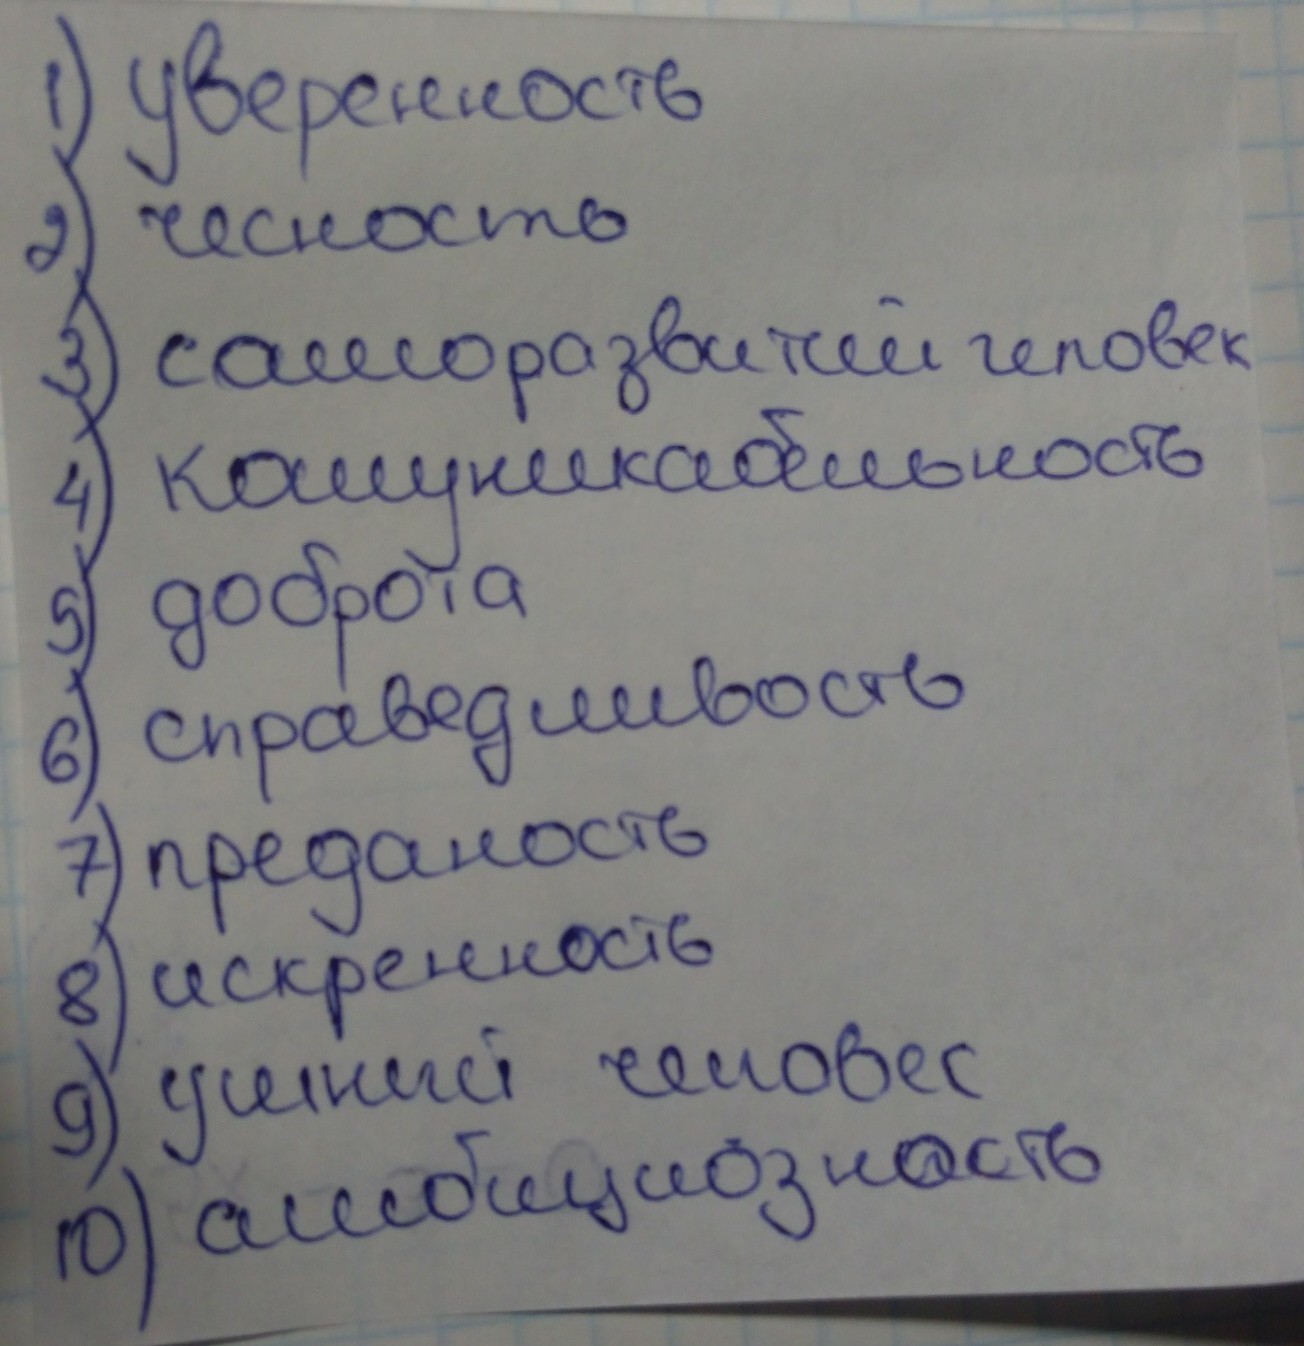 1) уверенность
2) чесность
3) саморазвитий человек
4) комуникабельность
5) доброта
6) справедливость
7) преданость
8) искренность
9) умный человес
10) амбициозность